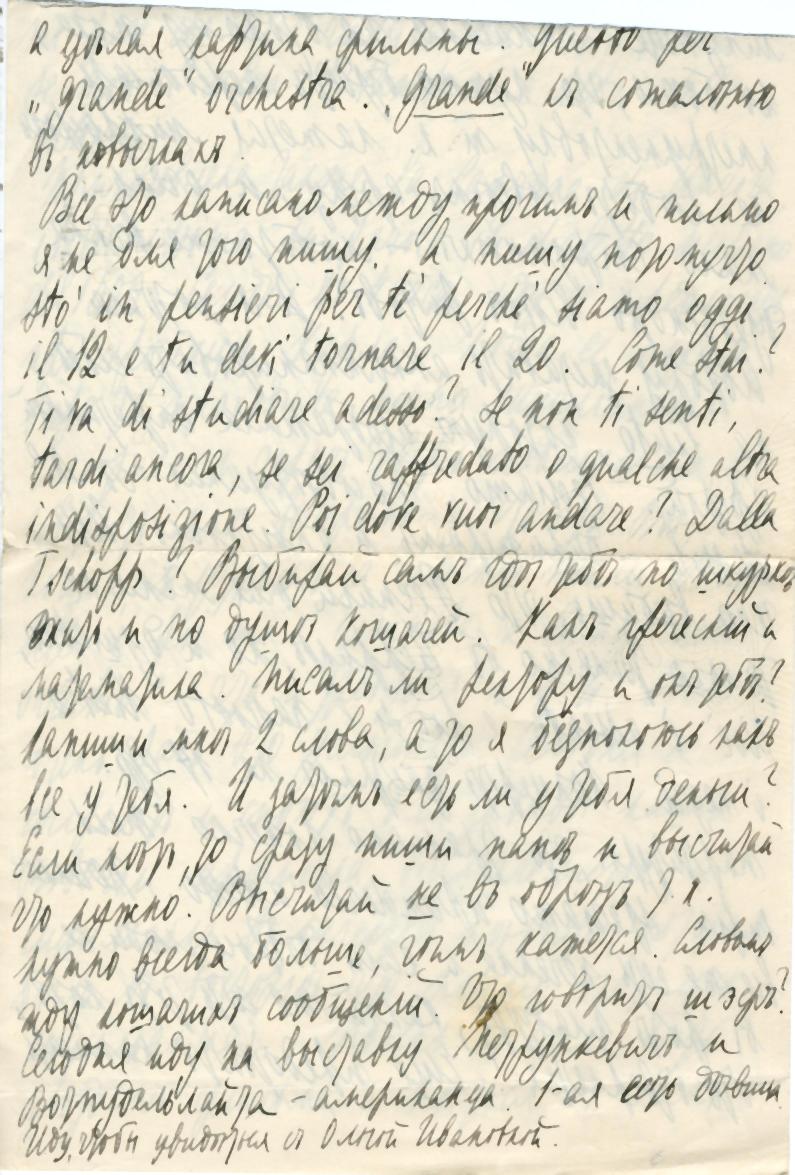 а цѣлая картина фильмы. Questo per
„grande" orchestra. „Grande" къ сожалѣнью
въ кавычкахъ.
Все это написано между прочимъ и только
я не для того пишу. А пишу потому что
stò in pensieri per te perchè siamo oggi
il 12 e tu devi tornare il 20. Come stai?
Ti va di studiare adesso? Se non ti senti,
tardi ancora, se sei raffredato o qualche altra
indisposizione. Poi dove vuoi andare? Dalla
Tschopp? Выбирай самъ гдѣ тебѣ по шкуркѣ
жить и по душѣ кошачей. Какъ греческій и
математика. Писалъ ли ректору и онъ тебѣ?
Напиши мнѣ 2 слова, а то я безпокоюсь какъ
все у тебя. И затѣмъ есть ли у тебя деньги?
Если нѣтъ, то сразу пиши папѣ и высчитай
что нужно. Высчитай не въ обрѣзъ т. к.
нужно всегда больше, чѣмъ кажется. Словомъ
жду кошачихъ сообщеній. Что говоритъ шэръ?
Сегодня иду на выставку Петрункевичъ и
– американца. 1-ая есть дѣвица.
Иду, чтобы увидѣться съ Ольгой Ивановной.